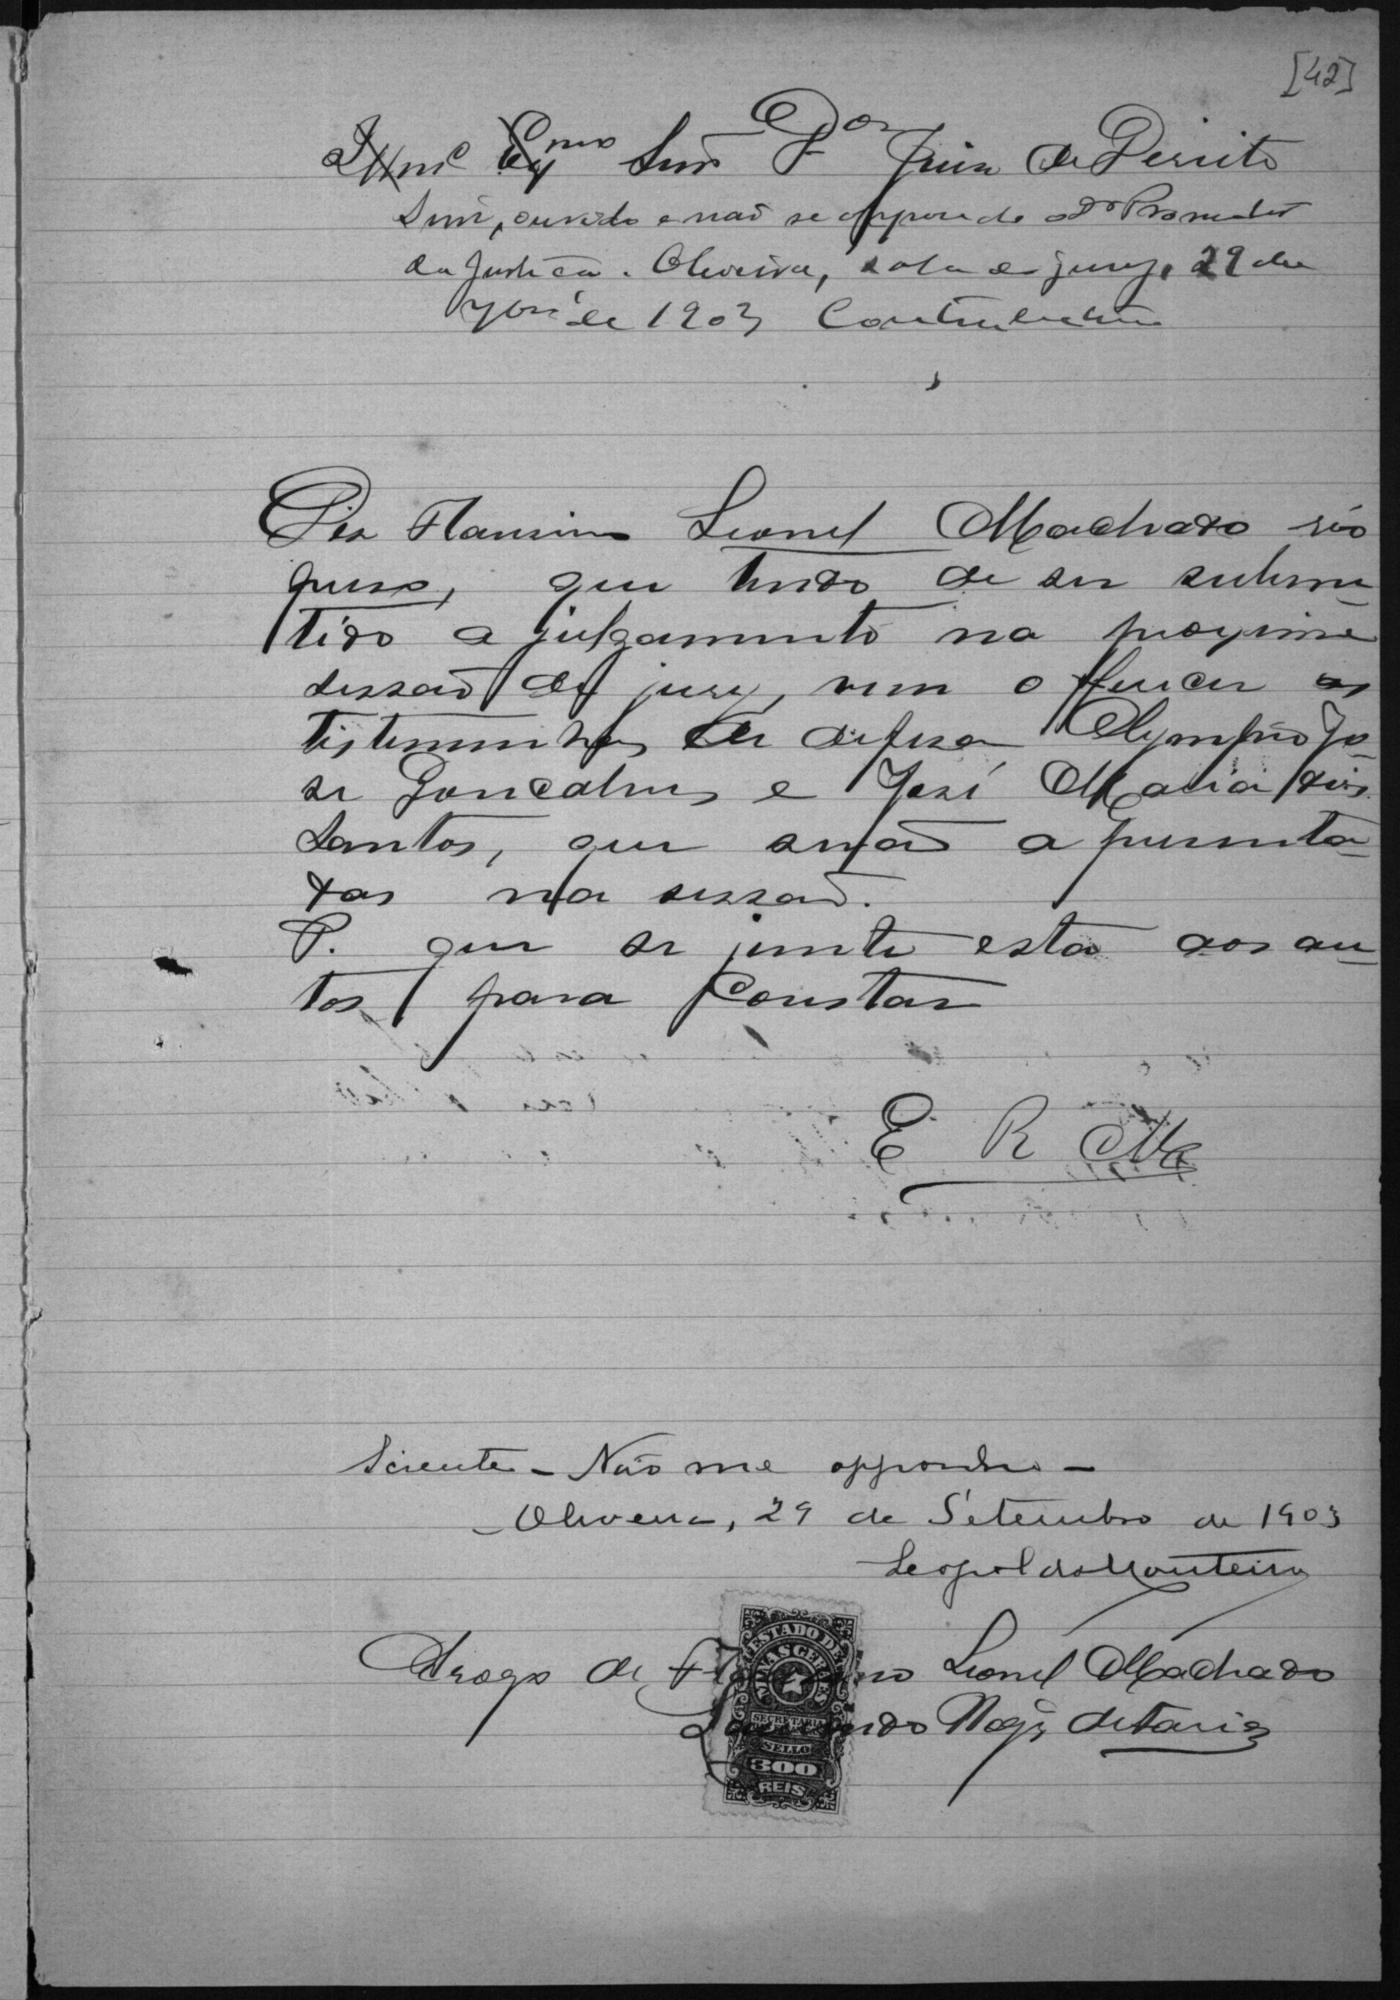 [42]
Illmo Exmo Snr Dor Juiz de Direito
Sim, ouvido e não se oppondo o Dr Promotor
da Justiça. Oliveira, sala do jury, 29 de
7bro de 1903
Diz Flausino Leonel Machado réo
preso, que tendo de ser subme-
tido a julgamento na proxima
sessão do jury, vem offerecer as
testemunhas de defesa Olympio Jo-
sé Goncalves e José Maria dos
Santos, que serão apresenta-
das na sessão.
P. que se junte esta aos au-
tos para Constar
E R Mce
Sciente - Não me opponho -
Oliveira, 29 de Setembro de 1903
Leopoldo Monteiro
Arogo de Flausino Leonel Machado
ESTADO DE
MINAS GERAES
SECRETARIA
SELLO
300
REIS